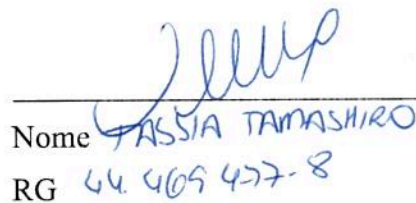 Nome TASSIA TAMASHIRO
RG 44.469.477-8